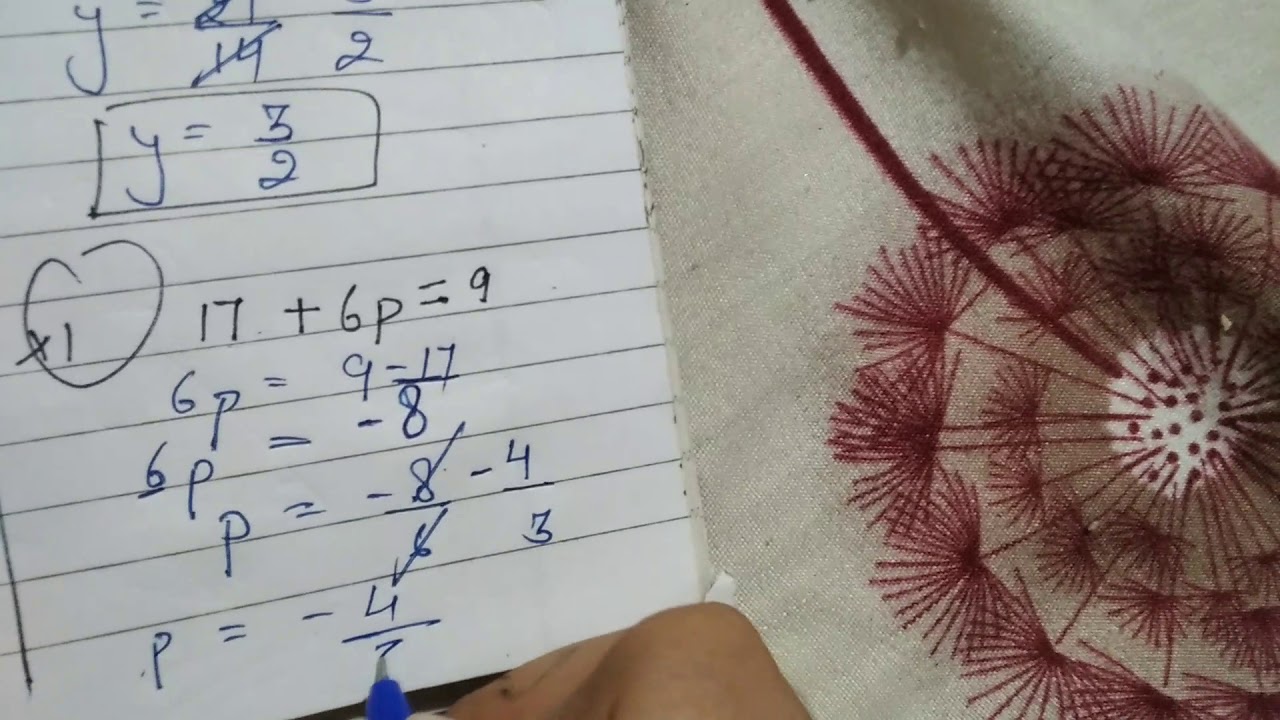 y = 21/14 /2
y = 3/2
x1 17 + 6p = 9
6p = 9 - 17
6p = - 8
p = - 8/6 - 4/3
p = - 4/